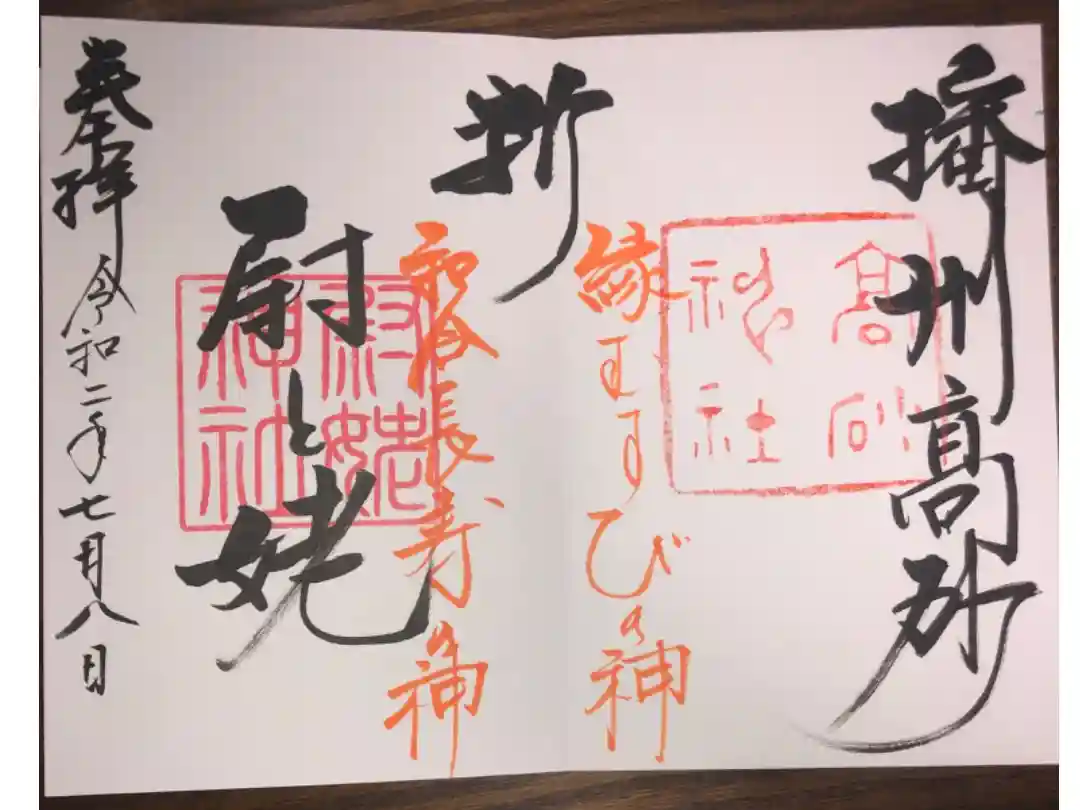 播州髙砂
髙砂
神社
縁むすびの神
祈
和合長寿の神
尉と姥
尉姥
神社
奉拝 令和二年七月八日